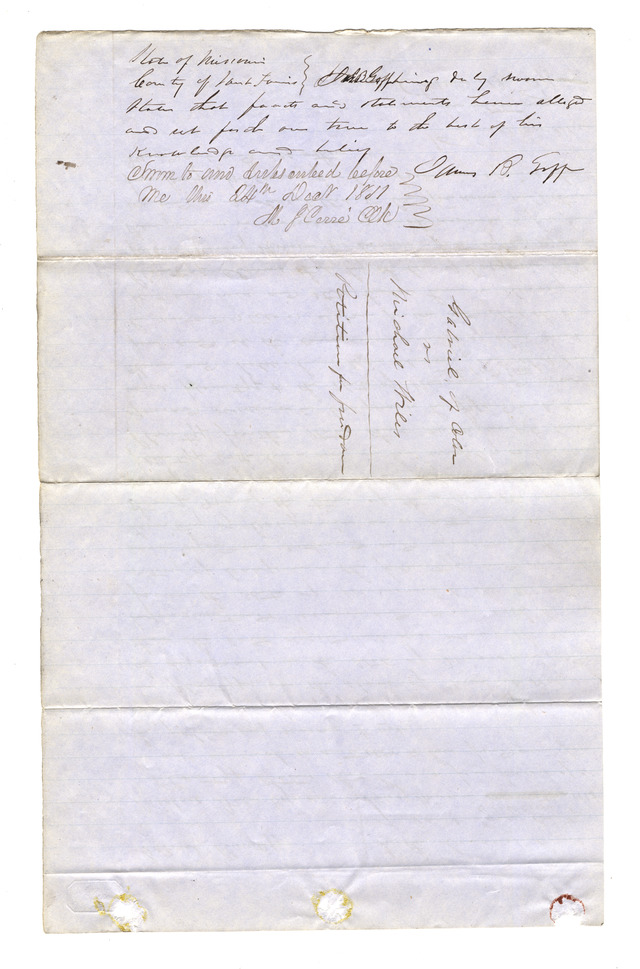 State of Missouri
County of Saint Louis } Jas B Goff being duly sworn
states that facts and statements herein alleged
and set forth are true to the best of his
knowledge and belief
Sworn to and subscribed before James B. Goff
me this 24th
M J Cerré Clk
Gabriel of Color
vs
Michael
Petition for freedom